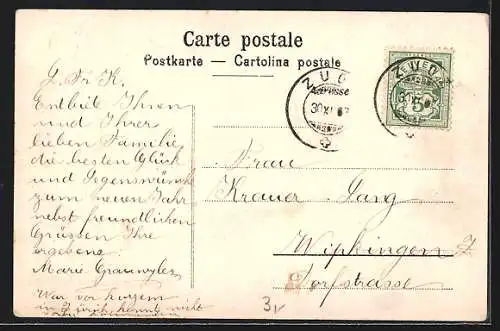 Carte postale
Postkarte — Cartolina postale
L. Fr. K.
Entbiete Ihnen
und Ihrer
lieben Familie
die besten Glück
und Segenswünsche
zum neuen Jahr
nebst freundlichen
Grüssen Ihre
ergebene
Marie Grauwyler
War vor kurzem
in Zürich konnt nicht
ZUG
30 XI
5
Frau
Krauer-Gang
Wipkingen Z.
Dorfstrasse
3v